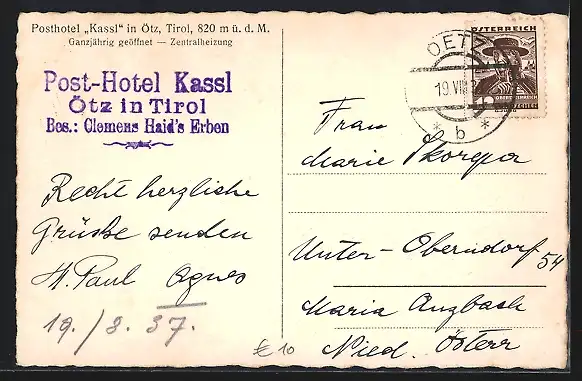 Posthotel „Kassl“ in Ötz, Tirol, 820 m ü. d. M.
Ganzjährig geöffnet — Zentralheizung
Post-Hotel Kassl
Ötz in Tirol
Bes.: Clemens Haid's Erben
Recht herzliche
Grüsse senden
Paul Agnes
19./8. 37.
OETZ
19. VIII
* b *
ÖSTERREICH
Frau
Marie Skorepa
Unter-Oberndorf 54
Maria Anzbach
Nied. Österr
€ 10